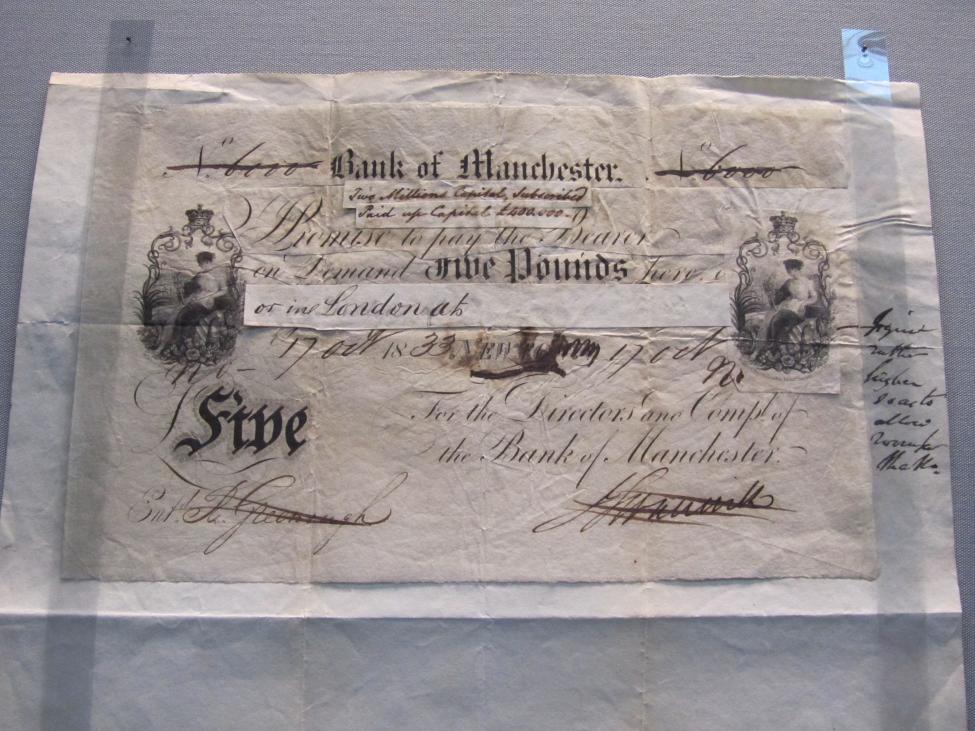 6000 Bank of Manchester. 6000
Two Millions Capital, Subscribed
Paid up Capital £400,000
Promise to pay the Bearer
on Demand Five Pounds here
or in London at
17 Oct 1833 17 Oct
No
Five
For the Directors and Compy. of
the Bank of Manchester.
Entd. Greenough
figure
rather
higher
so as to
allow
room for